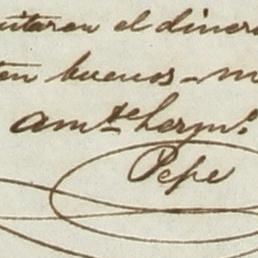 uitaren el dinero
ten buenos - m
am.te herm.o
Pepe